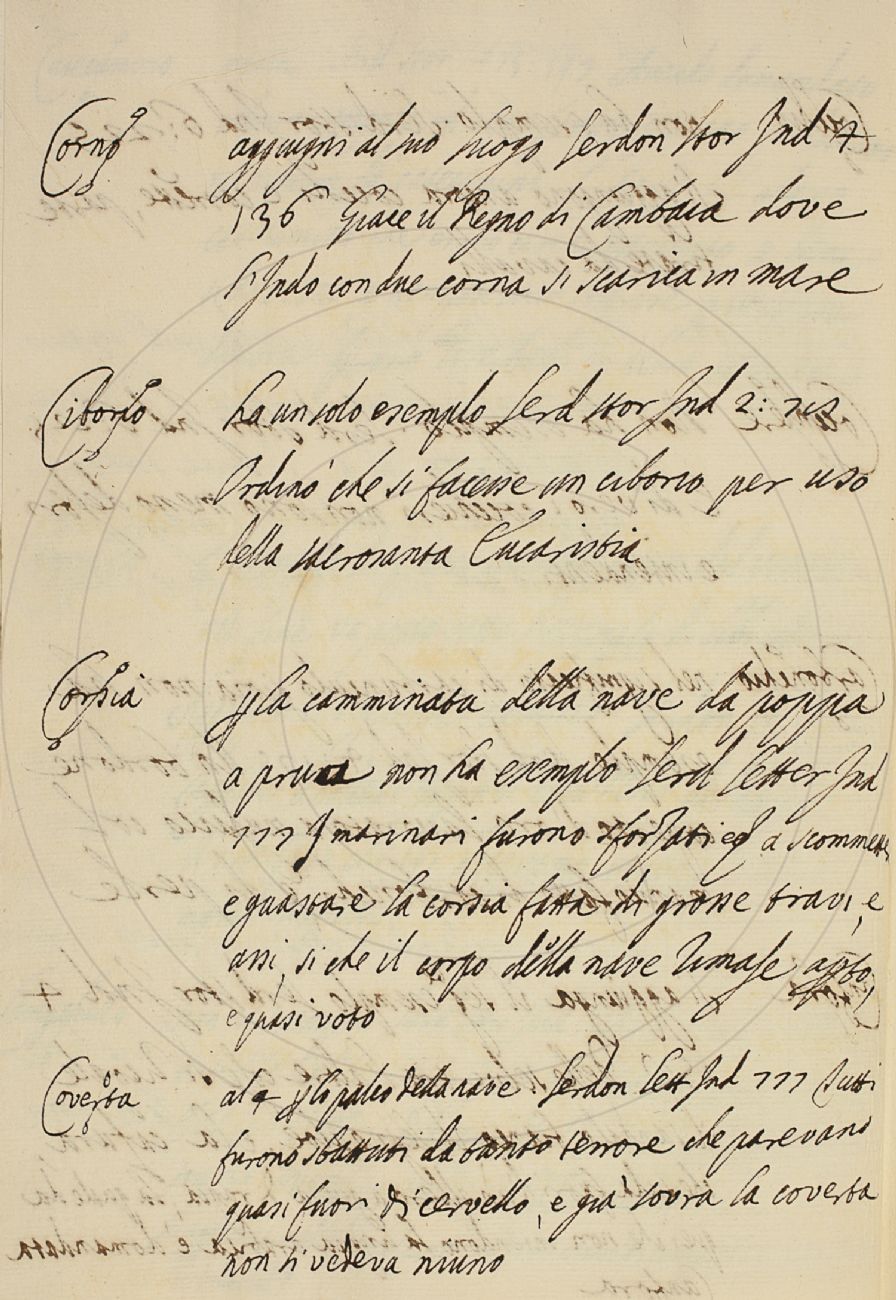 Corno aggiugni al suo luogo Serdon stor Ind 4
136 Giace il Regno di Cambaia dove
l'Indo con due corna si scarica in mare
Ciborio ha un solo esempio Serd stor Ind 2:
Ordinò che si facesse un ciborio per uso
della sacrosanta Eucaristia
Corsia p la camminata della nave da poppa
a prua non ha esempio Serd Letter Ind
777 I marinari furono sforzati a scommettere
e guastare la corsia fatta di grosse travi, e
assi, si che il corpo della nave rimase apto,
e quasi voto
Coverta al 4 p lo palco della nave. Serdon Lett Ind 777 Tutti
furono sbattuti da tanto terrore che parevano
quasi fuori di cervello, e già sovra la coverta
non si vedeva niuno